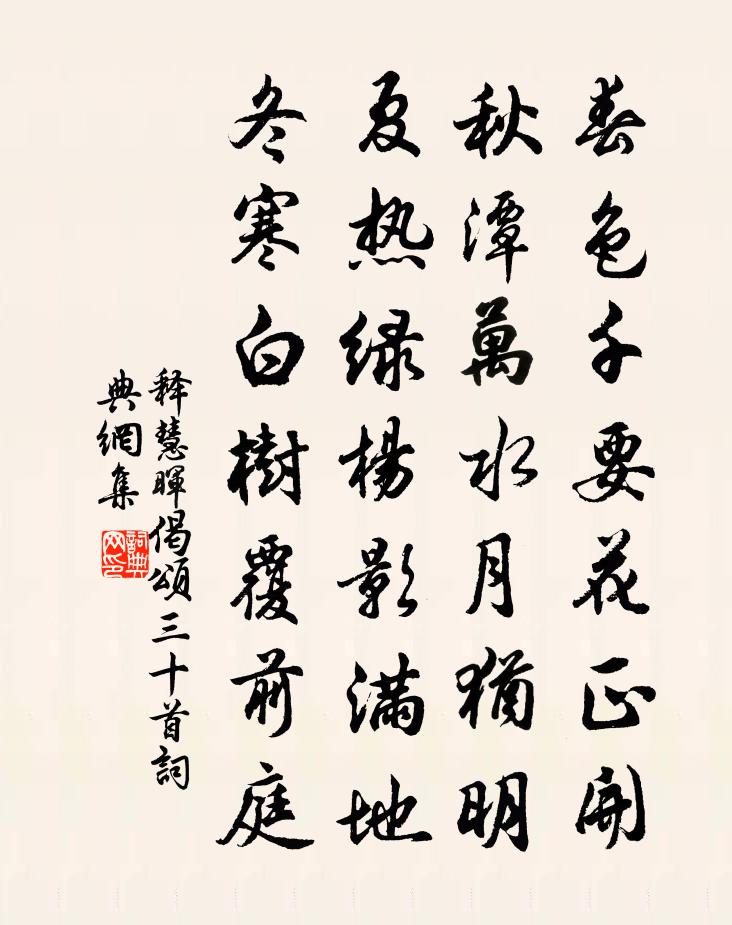 春色千要花正開
秋潭萬水月猶明
夏热绿楊影滿地
冬寒白樹覆前庭
释慧暉偈頌三十首詞
典網集
詞典
网印